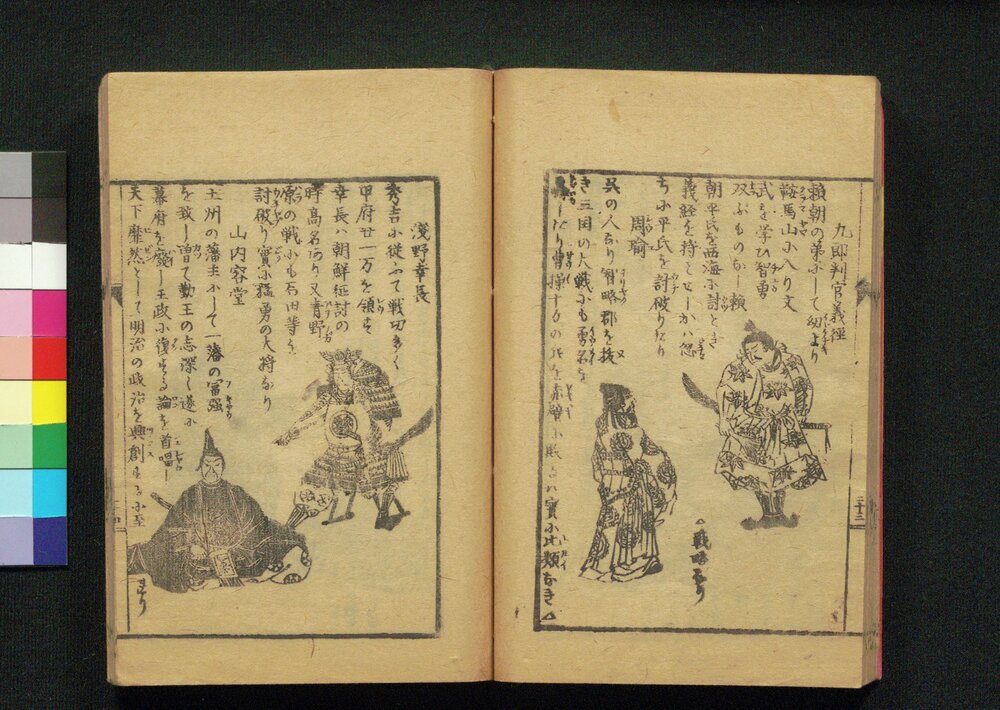 九郎判官義經
頼朝の弟にして幼より
鞍馬山に入り文
武を学び智勇
双ぶものなし頼
朝平氏を西海に討とき
義経を将とせしかバ忽
ちに平氏を討破りたり
周瑜
呉の人なり智略群を抜
き三国の大戦にも勇名を
したり曹操十万の兵を赤壁に敗るハ實に比類なき△
△戦略なり
二十三
淺野幸長
秀吉に従ふて戦功多く
甲府廿一万を領す
幸長ハ朝鮮征討の
時高名あり又青野
原の戦にも石田等を
討破り實に猛勇の大将なり
山内容堂
土州の藩主にして一藩の冨强
を致し曽て勤王の志深し遂に
幕府を廢し王政に復するの論を首唱し
天下靡然として明治の政治を興創するに至
れり